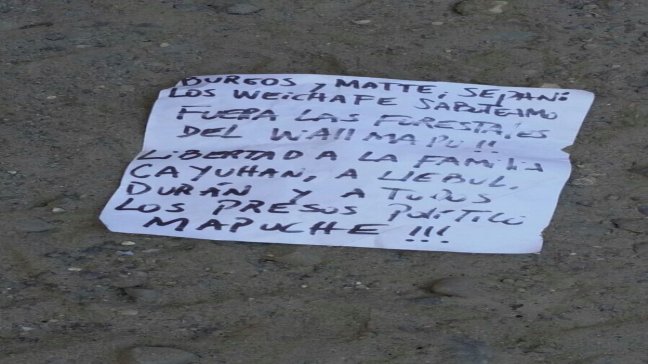 BURGOS Y MATTE, SEPAN:
LOS WEICHAFE SABOTEAMO
FUERA LAS FORESTALES
DEL WALLMAPU!!
LIBERTAD A LA FAMILIA
CAYUHAN, A LIEBUL,
DURÁN Y A TODOS
LOS PRESOS POLÍTICO
MAPUCHE !!!